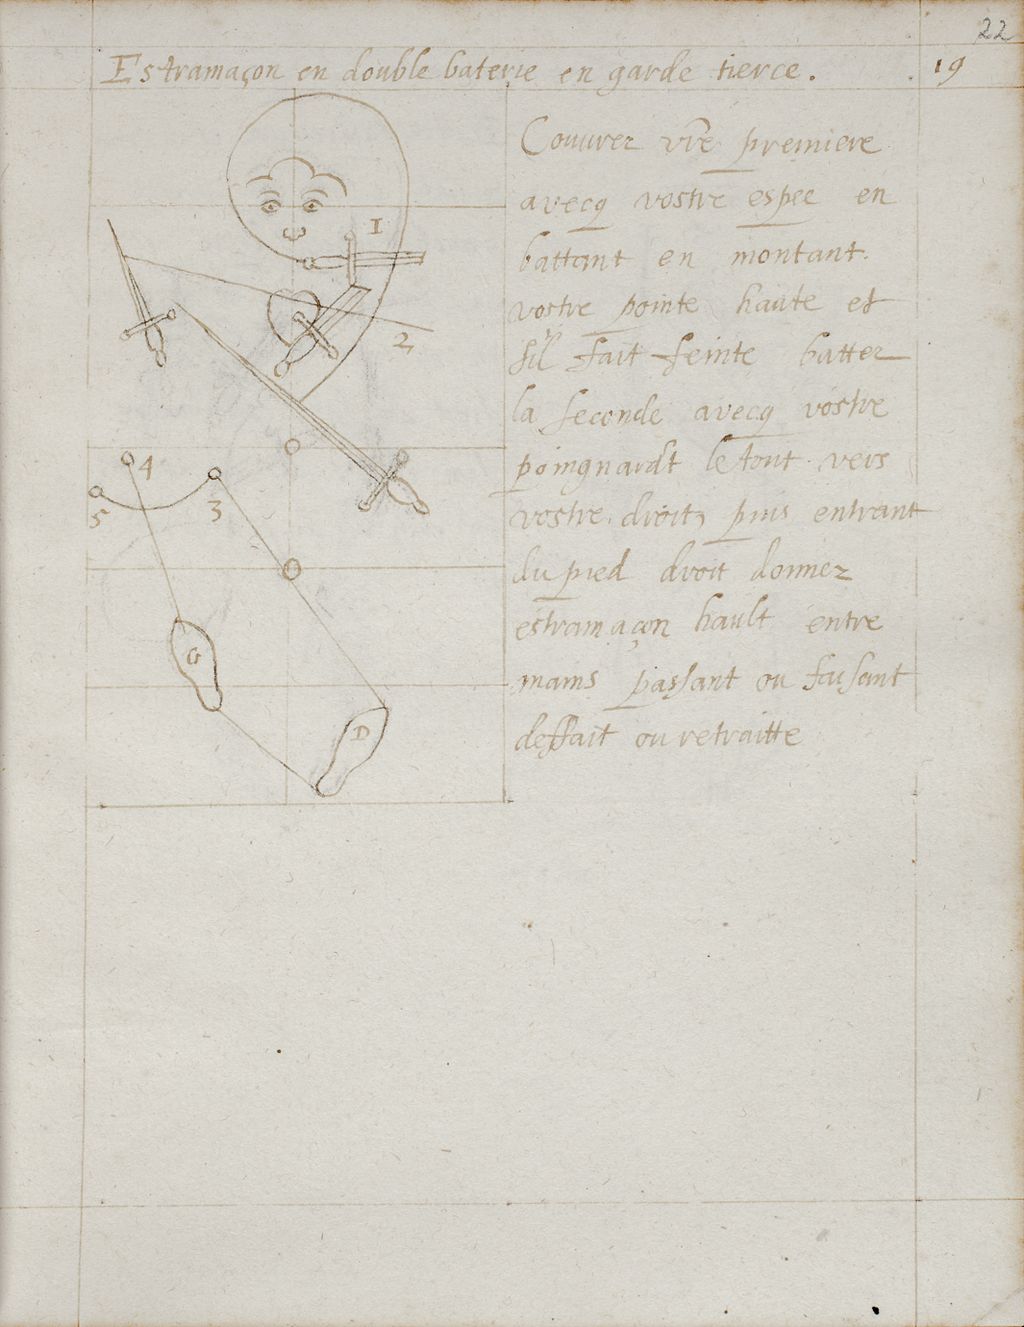 22
Estramaçon en double baterie en garde tierce.
19
Couurez vre premiere
avecq vostre espee en
battant en montant.
vostre pointe haute et
sil fait feinte batter
la seconde avecq vostre
poingnardt le tout vers
vostre droit, puis entrant
du pied droit donnez
estramaçon hault entre
mains passant ou faisant
deffait ou retraitte
1
2
4
3
5
G
D